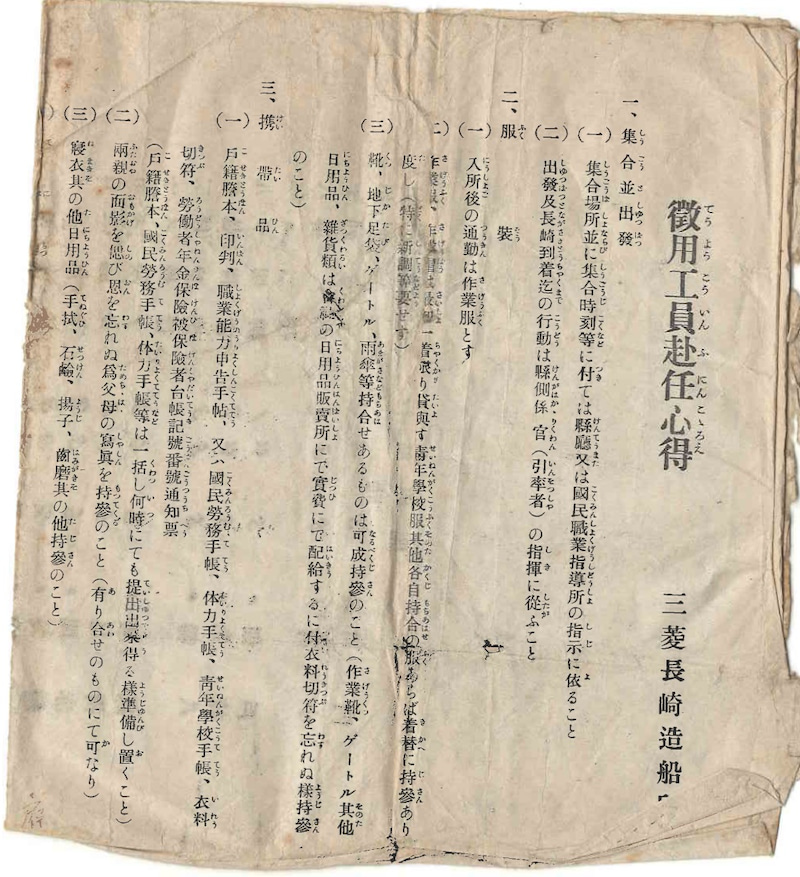 徵用工員赴任心得
三菱長崎造船
一、集合並出發
(一) 集合場所並に集合時刻等に付ては縣廳又は國民職業指導所の指示に依ること
(二) 出發及長崎到着迄の行動は縣側係官(引率者)の指揮に從ふこと
二、服裝
(一) 入所後の通勤は作業服とす
(二) 作業服、一着限り貸與す靑年學校服其他各自持合の服あらば着替に持參あり
度し(特に新調を要せず)
(三) 靴、地下足袋、ゲートル、雨傘等持合せあるものは可成持參のこと(作業靴、ゲートル其他
日用品、雜貨類はの日用品販賣所にて實費にて配給するに付衣料切符を忘れぬ樣持參
のこと)
三、携帶品
(一) 戶籍謄本、印判、職業能力申吿手帖、又は國民勞務手帳、体力手帳、靑年學校手帳、衣料
切符、勞働者年金保險被保險者台帳記號番號通知票
(戶籍謄本、國民勞務手帳、体力手帳等は一括し何時にても提出出來得る樣準備し置くこと)
(二) 兩親の面影を偲び恩を忘れぬ爲父母の寫眞を持參のこと(有り合せのものにて可なり)
(三) 寢衣其の他日用品(手拭、石鹼、揚子、齒磨其の他持參のこと)